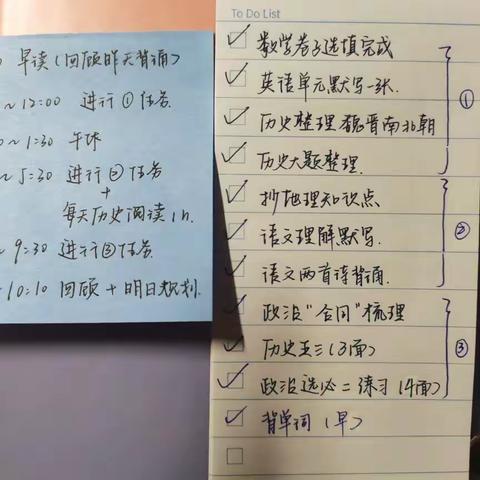 早读(回顾昨天背诵)
~12:00 进行①任务
~1:30 午休
~5:30 进行②任务
+
每天历史阅读1h.
~9:30 进行③任务
10:10 回顾+明日规划.
To Do List
数学卷子选填完成
英语单元默写一张.
历史整理 魏晋南北朝
①
历史大题整理.
抄地理知识点
语文理解默写.
②
语文两首诗背诵.
政治"合同"梳理
历史五三(3面)
③
政治选必二练习(4面)
背单词(早)